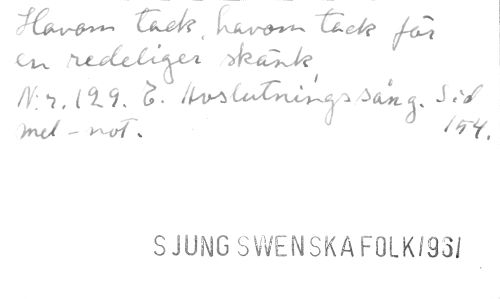 Havom tack, havom tack för
en redeliger skänk
N:r. 129. E. Avslutningssång. Sid
mel-not. 154.
SJUNG SWENSKA FOLK/1961